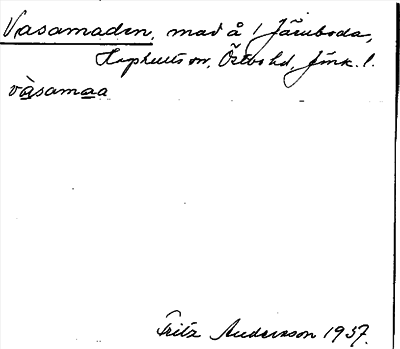 Vasamaden, mad å / Järnboda,
Haghults sn, Östbo hd, Jönk. l.
vàsamaa
Fritz Andersson 1937.